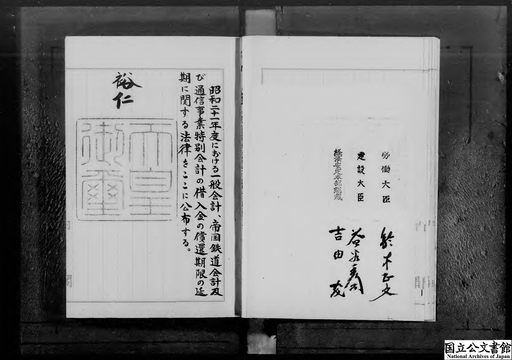 労働大臣 鈴木正文
建設大臣 益谷秀次
経済安定本部総裁 吉田茂
昭和二十一年度における一般会計、帝国鉄道会計及
び通信事業特別会計の借入金の償還期限の延
期に関する法律をここに公布する。
裕仁
天皇
御璽
国立公文書館
National Archives of Japan